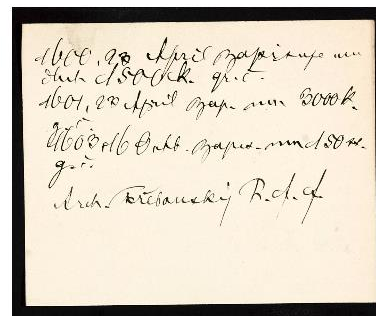 1600, 23 April zapisuje mu
dluh 1500 k. gr. č.
1601, 23 April zap. mu 3000 k.
gr. č.
1603, 16 Octb. zapis. mu 150
g. č.
Arch. Třeboňský R. f. f.